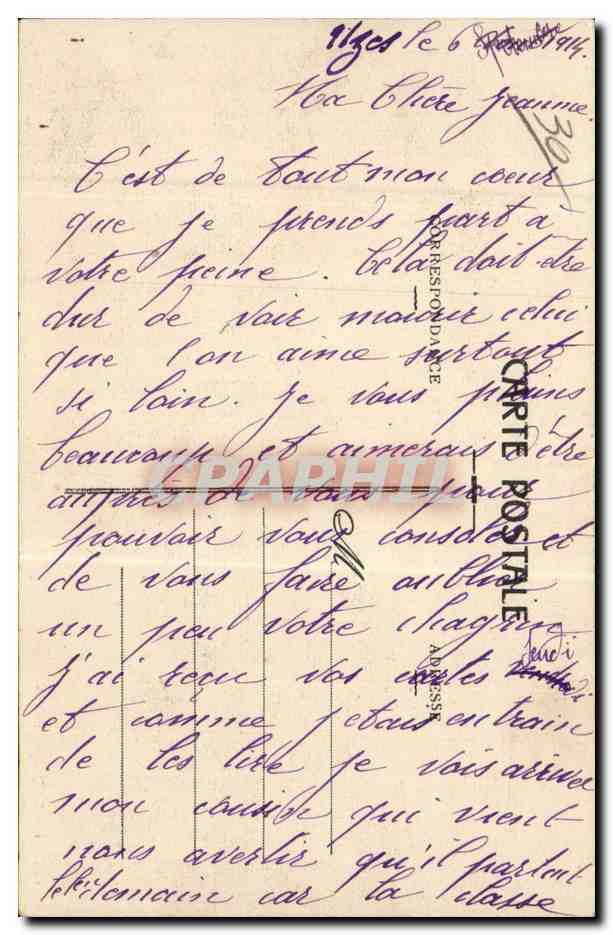 Uzès le 6 Septembre 1914.
Ma Chère Jeanne.
30
C'est de tout mon cœur
que je prends part à
votre peine. Cela doit être
dur de voir mourir celui
que l'on aime surtout
si loin. Je vous plains
beaucoup et aimerais d'être
auprès de vous pour
pouvoir vous consoler et
de vous faire oublier
un peu votre chagrin
J'ai reçu vos cartes Jeudi
et comme j'étais en train
de les lire je vois arriver
mon cousin qui vient
nous avertir qu'il partait
le lendemain car la classe
CARTE POSTALE
CORRESPONDANCE
ADRESSE
M
CPAPHIL